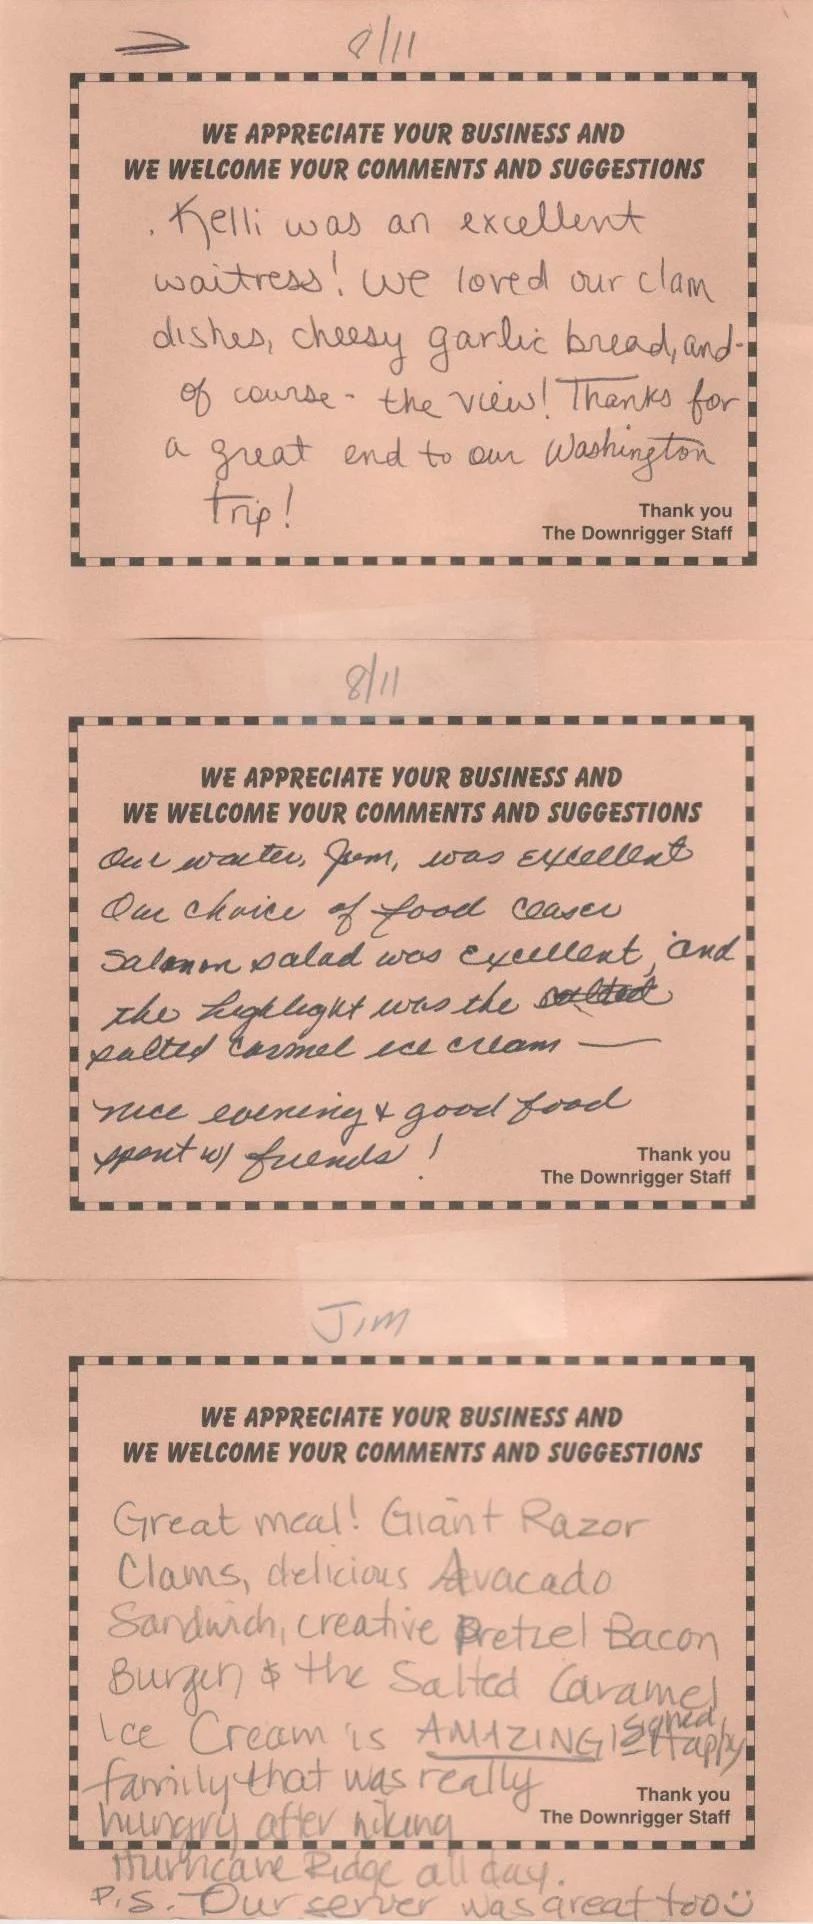 8/11
WE APPRECIATE YOUR BUSINESS AND
WE WELCOME YOUR COMMENTS AND SUGGESTIONS
. Kelli was an excellent
waitress! We loved our clam
dishes, cheesy garlic bread, and-
of course - the view! Thanks for
a great end to our Washington
trip!
Thank you
The Downrigger Staff
8/11
WE APPRECIATE YOUR BUSINESS AND
WE WELCOME YOUR COMMENTS AND SUGGESTIONS
Our waiter, Jim, was excellent
Our choice of food ceaser
salmon salad was excellent, and
the highlight was the salted
salted carmel ice cream —
nice evening & good food
spent w/ friends!
Thank you
The Downrigger Staff
Jim
WE APPRECIATE YOUR BUSINESS AND
WE WELCOME YOUR COMMENTS AND SUGGESTIONS
Great meal! Giant Razor
Clams, delicious Avacado
Sandwich, creative Pretzel Bacon
Burger & the Salted Caramel
Ice Cream is AMAZING! signed, Happy
family that was really
hungry after hiking
Hurricane Ridge all day.
Thank you
The Downrigger Staff
P.S. Our server was great too☺